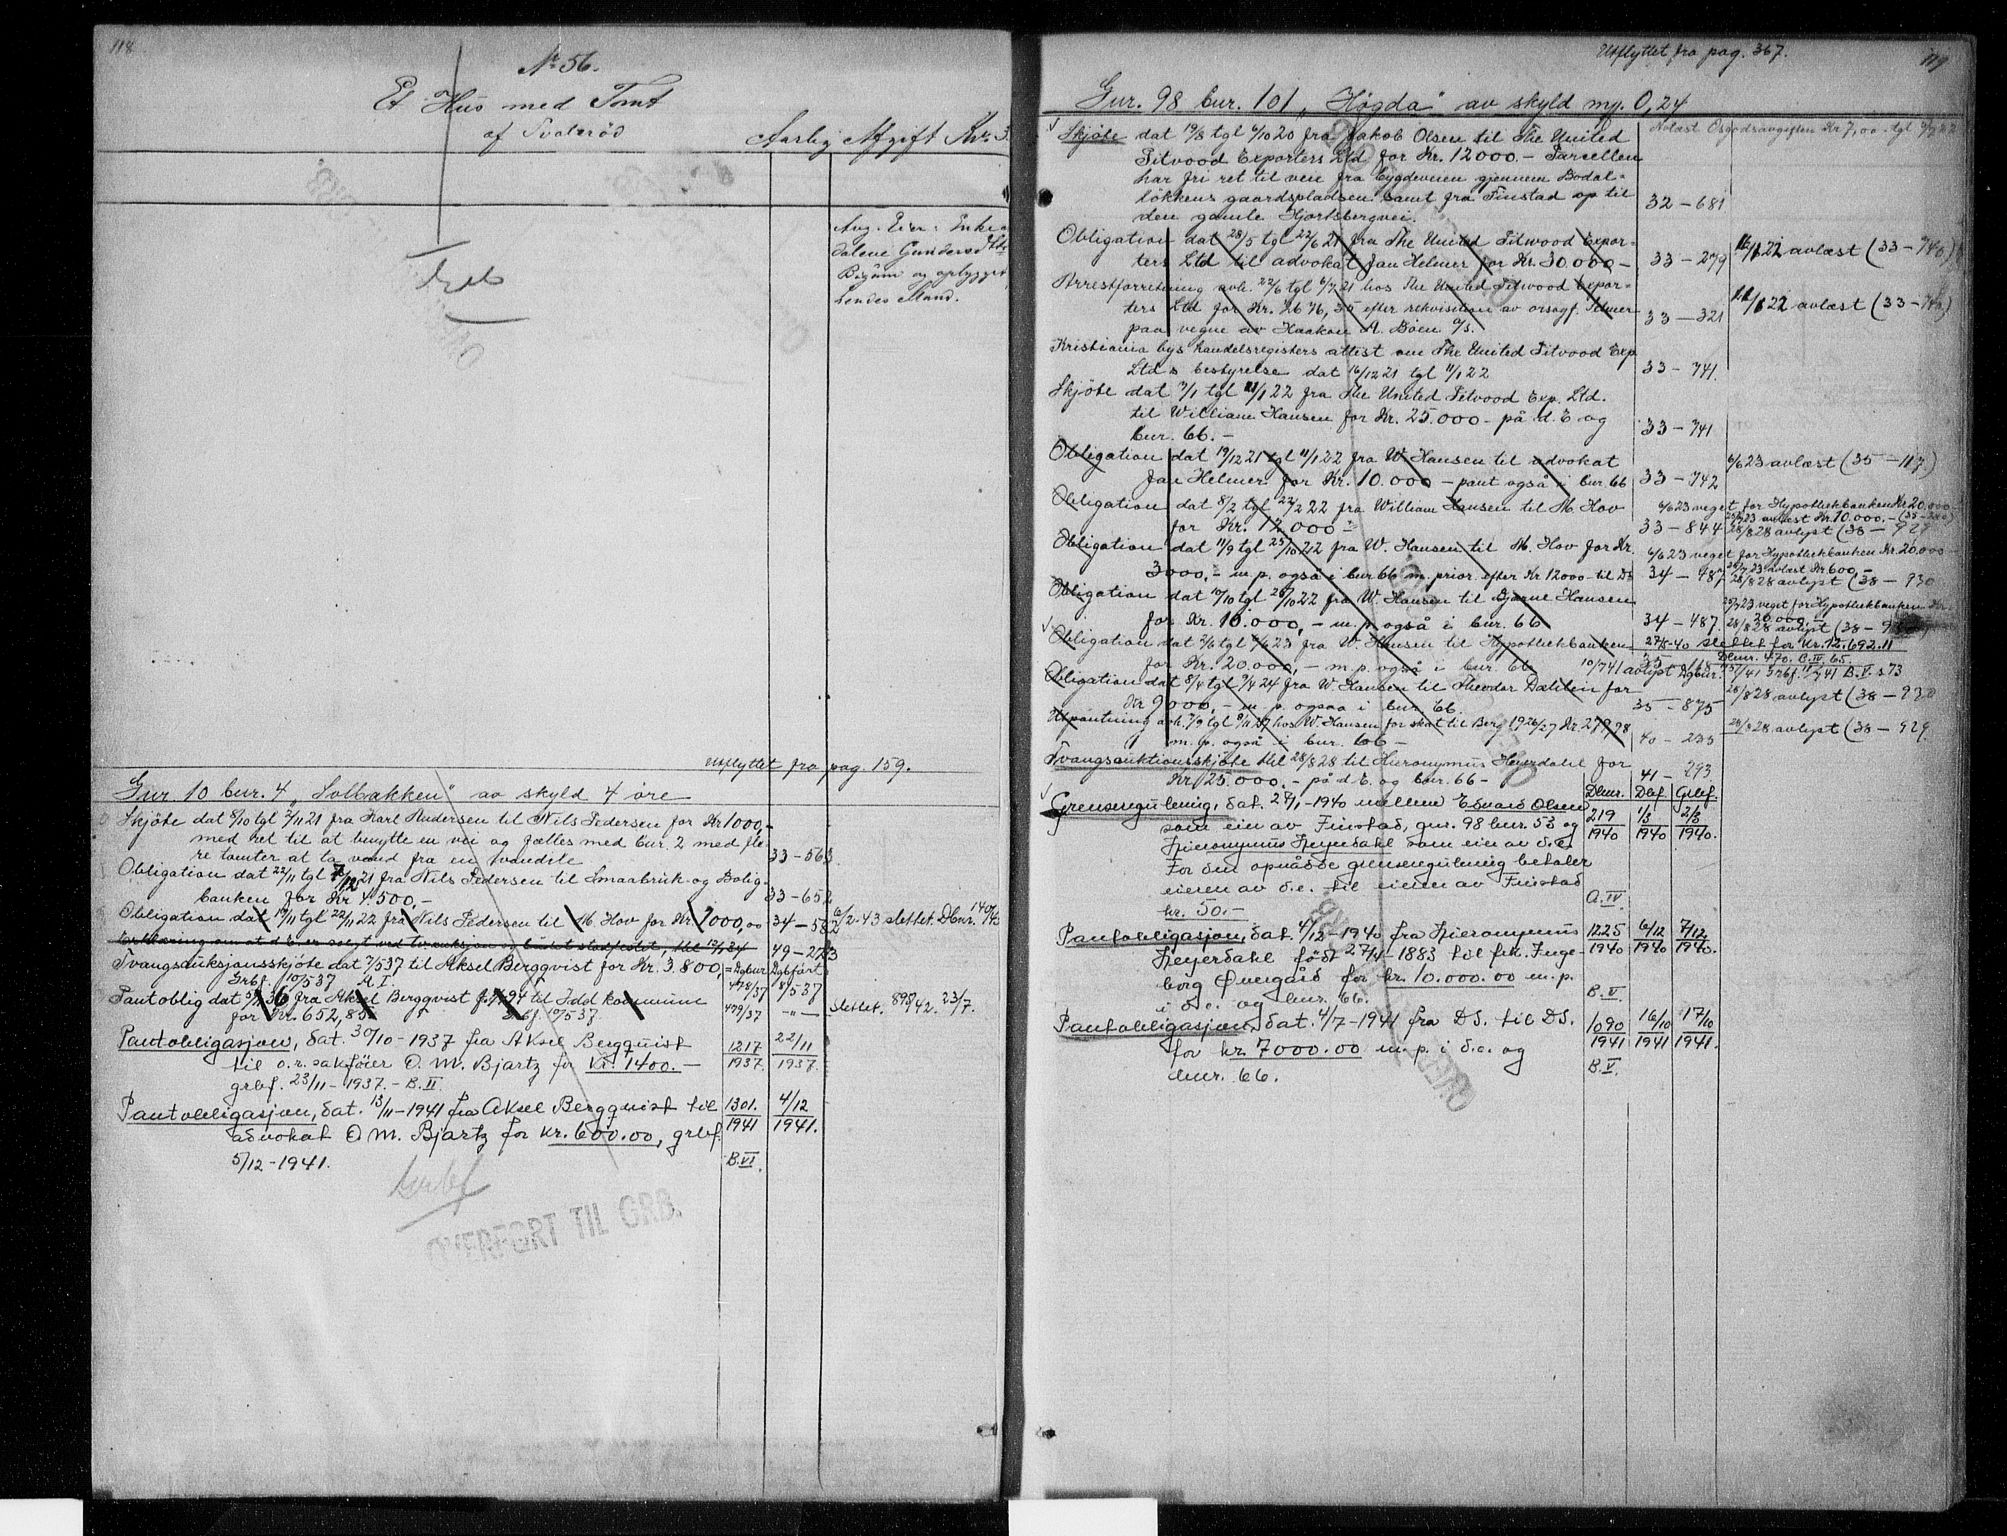 118
No 56.
Et Hus med Tomt
af
Aarlig Afgift Kr. 3.
Ang. Eier: Enke
Gunders
og opbygget
hendes Mand.
Utflyttet fra pag. 159.
Gnr. 10 bnr. 4 „Solbakken" av skyld 4 öre
Skjöte dat 8/10 tgl 2/11 21 fra Karl Andersen til Nils Pedersen for Kr 1000,-
med ret til at benytte en vei og fælles med bnr. 2 med fle-
re tomter at ta vand fra en vandile 33-563
Obligation dat 22/11 tgl 7/12 21 fra Nils Pedersen til Smaabruk- og Bolig-
banken for Kr 4.500,- 33-652
Obligation dat 19/11 tgl 22/11 22 fra Nils Pedersen til M. Hov for Kr. 1000,00 34-582 6/2-43 slettet Dbnr. 140/43
Erklæring om at d. E. er solgt ved tvauksjon 49-273
Tvangsauksjonsskjöte dat 7/5 37 til Aksel Bergqvist for Kr. 3.800,- Dgbnr Dgbfört
Grbf. 10/5 37 A.I. 478/37 8/5 37
Pantoblig dat 5/11 36 fra Aksel Bergqvist f. 94 til Idd kommune
for Kr. 652,85 Grbf. 10/5 37 479/37 -"- Slettet. 898/42. 23/7.
Pantobligasjon, dat. 30/10-1937 fra Aksel Bergquist 1217 22/11
til o.r. sakförer O. M. Bjartz for kr. 1400.- 1937. 1937.
grbf. 23/11-1937.- B.II.
Pantobligasjon, dat. 13/11-1941 fra Aksel Bergquist til 1301. 4/12
advokat O M. Bjartz for kr. 600.00, grbf. 1941 1941.
5/12-1941. B.VI.
OVERFØRT TIL GRB.
Utflyttet fra pag. 367. 119
Gnr. 98 bnr. 101 „Høgda" av skyld mp. 0,24
Avløst Osgodsavgiften Kr 7,00 tgl
Skjöte dat 19/8 tgl 6/10 20 fra Jakob Olsen til The United
Pitwood Exporters Ltd for Kr. 12000.- Parcellen
har fri ret til vei fra bygdeveien gjennem Bodal-
løkkens gaardspladsen samt fra Finstad op til 32-681
den gamle Hjortsbergvei.
Obligation dat 28/5 tgl 22/6 21 fra The United Pitwood Expor-
ters Ltd til advokat Jan Helmer for Kr. 30.000- 33-279 11/1 22 avlæst (33-740)
Arrestforretning avh. 22/6 tgl 6/7 21 hos The United Pitwood Expor-
ters Ltd for Kr. 2676,35 efter rekvisition av orsagf. 33-321 11/1 22 avlæst (33-740)
paa vegne av Haakon A. Böen A/S.
Kristiania bys handelsregisters attest om The United Pitwood Exp
Ltd s bestyrelse dat 16/12 21 tgl 11/1 22 33-741.
Skjöte dat 7/1 tgl 11/1 22 fra The United Pitwood Exp. Ltd.
til William Hansen for Kr. 25.000- på d. E og 33-741
bnr. 66.-
Obligation dat 19/12 21 tgl 11/1 22 fra W. Hansen til advokat 6/6 23 avlæst (35-117)
Jan Helmer for Kr. 10.000- pant også i bnr. 66 33-742
Obligation dat 8/2 tgl 22/2 22 fra William Hansen til M. Hov 6/6 23 veget for Hypothekbanken Kr 20.000-
for Kr. 12.000- 33-844 avlæst Kr. 10.000.-
28/8 28 avlyst (38-929
Obligation dat 11/9 tgl 25/10 22 fra W. Hansen til M. Hov for Kr. 6/6 23 veget for Hypothekbanken Kr. 20.000-
3000,- m.p. også i bnr 66 m. prior. efter Kr 12000- til Ds 34-487 avlæst Kr 600,-
28/8 28 avlyst (38-930
Obligation dat 10/10 tgl 26/10 22 fra W. Hansen til Bjarne Hansen veget for Hypothekbanken Kr.
for Kr. 10.000,- m.p. også i bnr. 66 34-487 20.000,-
28/8 28 avlyst (38-
Obligation dat 2/6 tgl 6/6 23 fra W. Hansen til Hypothekbanken 27/5-40 slettet for Kr. 12.692.11
for Kr. 20.000,- m.p. også i bnr. 66 Dbnr. 470. B.IV. 65.
Obligation dat 8/4 tgl 9/4 24 fra W. Hansen til Theodor Dæhlen for 28/8 28 avlyst (38-930
Kr 9.000,- m.p. ogsaa i bnr. 66. 35-875
Utpantning avh. 7/9 tgl 9/11 27 hos W. Hansen for skat til Berg 1926/27 Kr. 279,98 28/8 28 avlyst (38-929
m.p. også i bnr. 66- 40-233
Tvangsauktionsskjöte til 28/8 28 til Hieronymus Heierdahl for
Kr. 25.000.- på d. E. og bnr. 66- 41-293
Dbnr. Dbf. Grbf.
Grenseregulering, dat. 27/1-1940 mellem Edvard Olsen 219 1/3 2/3
som eier av Finstad, gnr. 98 bnr. 53 og 1940 1940 1940.
Hieronymus Heyerdahl som eier av d.e.
For den opnådde grenseregulering betaler
eieren av d.e. til eieren av Finstad
kr. 50.- A.IV.
Pantobligasjon, dat. 4/12-1940 fra Hieronymus 1225 6/12 7/12
Heyerdahl födt 27/4-1883 til frk. Inge- 1940 1940 1940.
borg Övergård for kr. 10.000.00 m.p.
i d.e. og bnr. 66. B.V.
Pantobligasjon, dat. 4/7-1941 fra DS. til DS. 1090 16/10 17/10
for kr 7000.00 m.p. i d.e. og 1941 1941 1941.
bnr. 66. B.V.